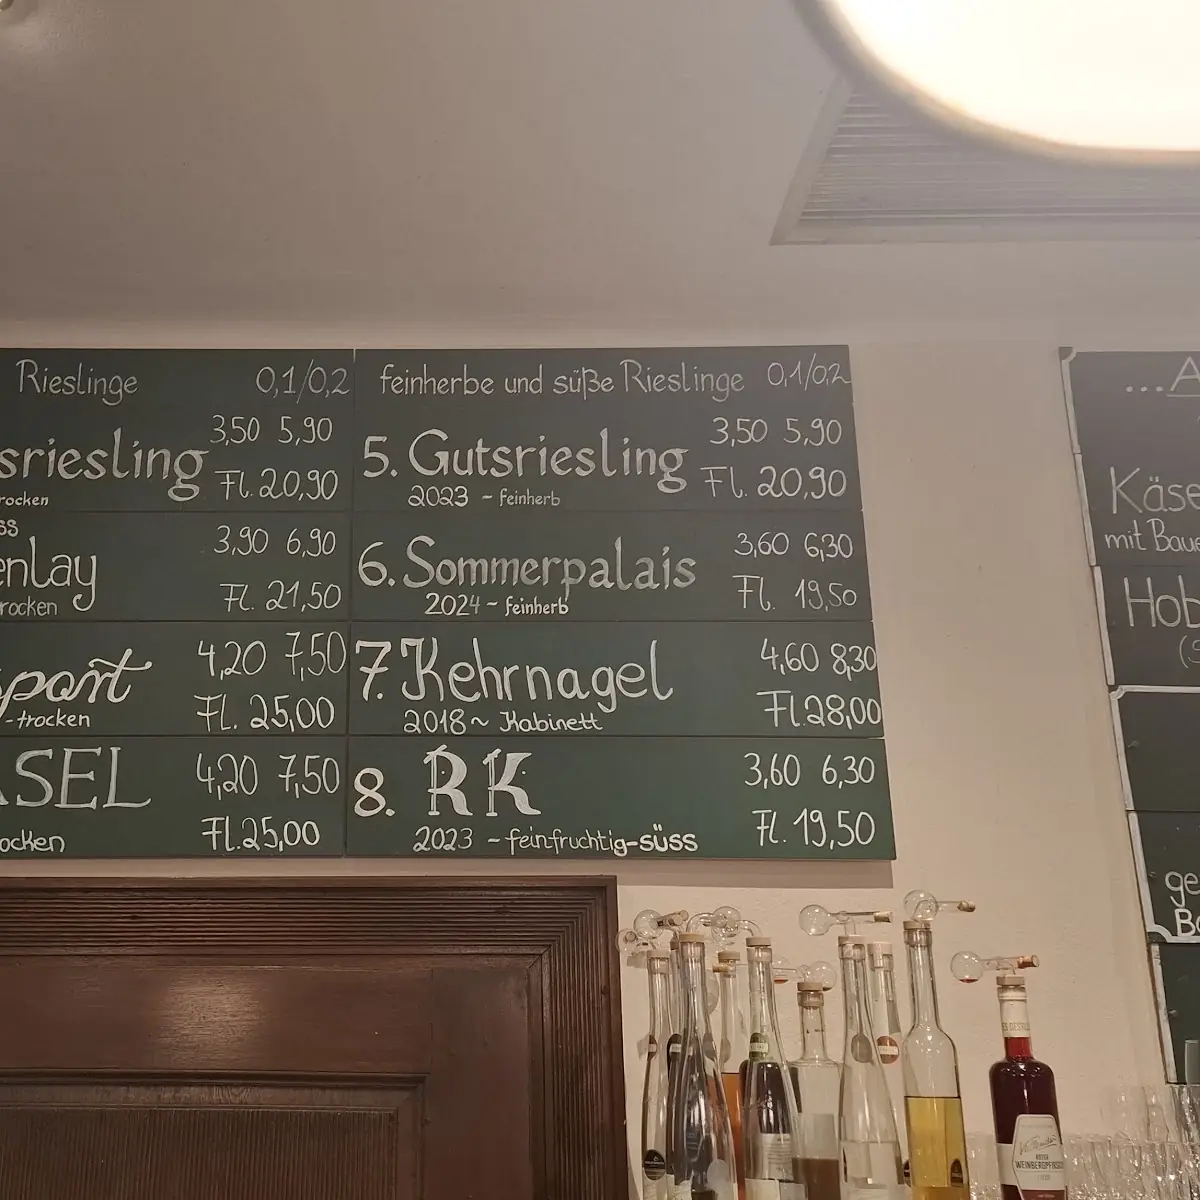 Rieslinge 0,1/0,2
sriesling 3,50 5,90
Fl. 20,90
rocken
ss
enlay 3,90 6,90
rocken Fl. 21,50
port 4,20 7,50
-trocken Fl. 25,00
SEL 4,20 7,50
ocken Fl. 25,00
feinherbe und süße Rieslinge 0,1/0,2
5. Gutsriesling 3,50 5,90
2023 - feinherb Fl. 20,90
6. Sommerpalais 3,60 6,30
2024 - feinherb Fl. 19,50
7. Kehrnagel 4,60 8,30
2018 ~ Kabinett Fl. 28,00
8. RK 3,60 6,30
2023 - feinfruchtig-süss Fl. 19,50
...A
Käse
mit Baue
Hob
ge
WEINBERGPFIRSICH